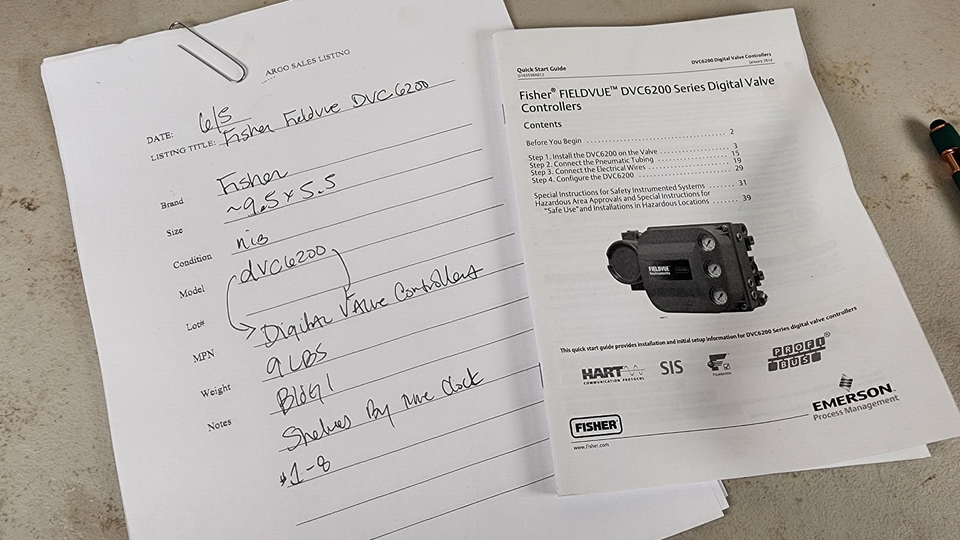 ARGO SALES LISTING
DATE: 6/5
LISTING TITLE: Fisher Fieldvue DVC6200
Brand Fisher
Size ~9.5 x 5.5
Condition nib
Model dVC6200
Lot#
MPN Digital Valve Controllers
Weight 9 LBS
Notes Bldg 1
Shelves By Time Clock
#1-8
Quick Start Guide
D103556X012
DVC6200 Digital Valve Controllers
January 2014
Fisher® FIELDVUE™ DVC6200 Series Digital Valve
Controllers
Contents
Before You Begin 2
Step 1. Install the DVC6200 on the Valve 3
Step 2. Connect the Pneumatic Tubing 15
Step 3. Connect the Electrical Wires 19
Step 4. Configure the DVC6200 29
Special Instructions for Safety Instrumented Systems 31
Hazardous Area Approvals and Special Instructions for
"Safe Use" and Installations in Hazardous Locations 39
FIELDVUE
Instruments
This quick start guide provides installation and initial setup information for DVC6200 Series digital valve controllers
HART
COMMUNICATION PROTOCOL
SIS
PROFI
BUS®
FISHER
www.Fisher.com
EMERSON
Process Management